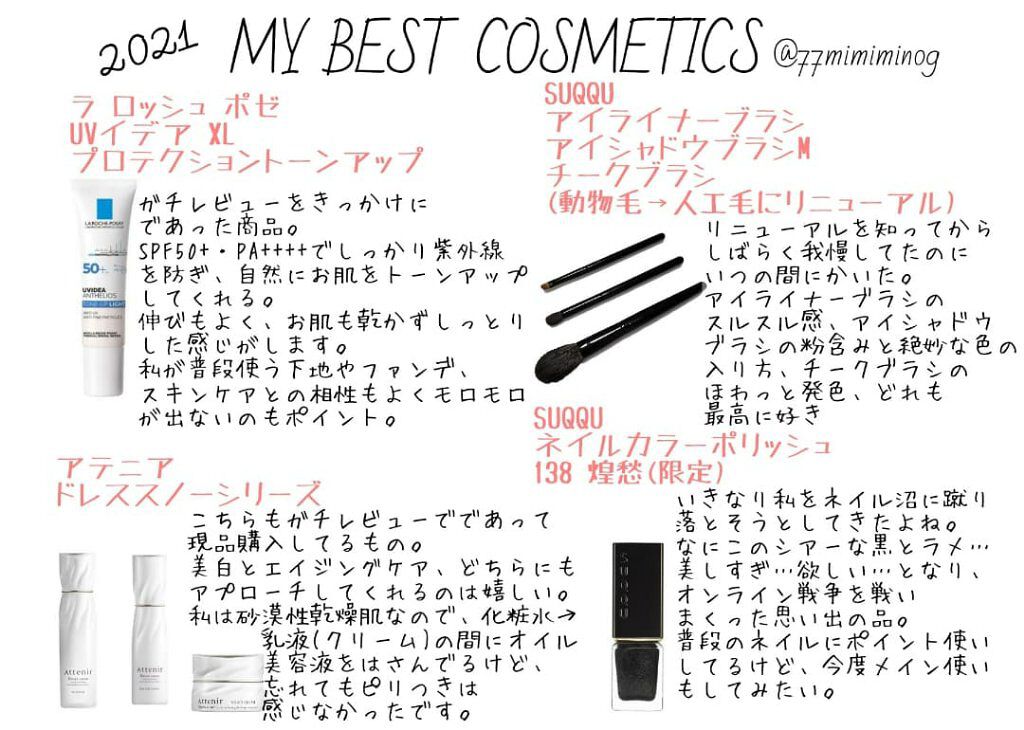 2021 MY BEST COSMETICS @77mimiminog
ラ ロッシュ ポゼ
UVイデア XL
プロテクショントーンアップ
ガチレビューをきっかけに
であった商品。
SPF50+・PA++++でしっかり紫外線
を防ぎ、自然にお肌をトーンアップ
してくれる。
伸びもよく、お肌も乾かずしっとり
した感じがします。
私が普段使う下地やファンデ、
スキンケアとの相性もよくモロモロ
が出ないのもポイント。
LA ROCHE-POSAY
50+
UVIDEA
ANTHELIOS
TONE-UP LIGHT
SUQQU
アイライナーブラシ
アイシャドウブラシM
チークブラシ
(動物毛→人工毛にリニューアル)
リニューアルを知ってから
しばらく我慢してたのに
いつの間にかいた。
アイライナーブラシの
スルスル感、アイシャドウ
ブラシの粉含みと絶妙な色の
入り方、チークブラシの
ほわっと発色、どれも
最高に好き
アテニア
ドレススノーシリーズ
こちらもガチレビューでであって
現品購入してるもの。
美白とエイジングケア、どちらにも
アプローチしてくれるのは嬉しい。
私は砂漠性乾燥肌なので、化粧水→
乳液(クリーム)の間にオイル
美容液をはさんでるけど、
忘れてもピリつきは
感じなかったです。
Attenir
Attenir
Attenir
SUQQU
ネイルカラーポリッシュ
138 煌愁(限定)
いきなり私をネイル沼に蹴り
落とそうとしてきたよね。
なにこのシアーな黒とラメ…
美しすぎ…欲しい…となり、
オンライン戦争を戦い
まくった思い出の品。
普段のネイルにポイント使い
してるけど、今度メイン使い
もしてみたい。
SUQQU